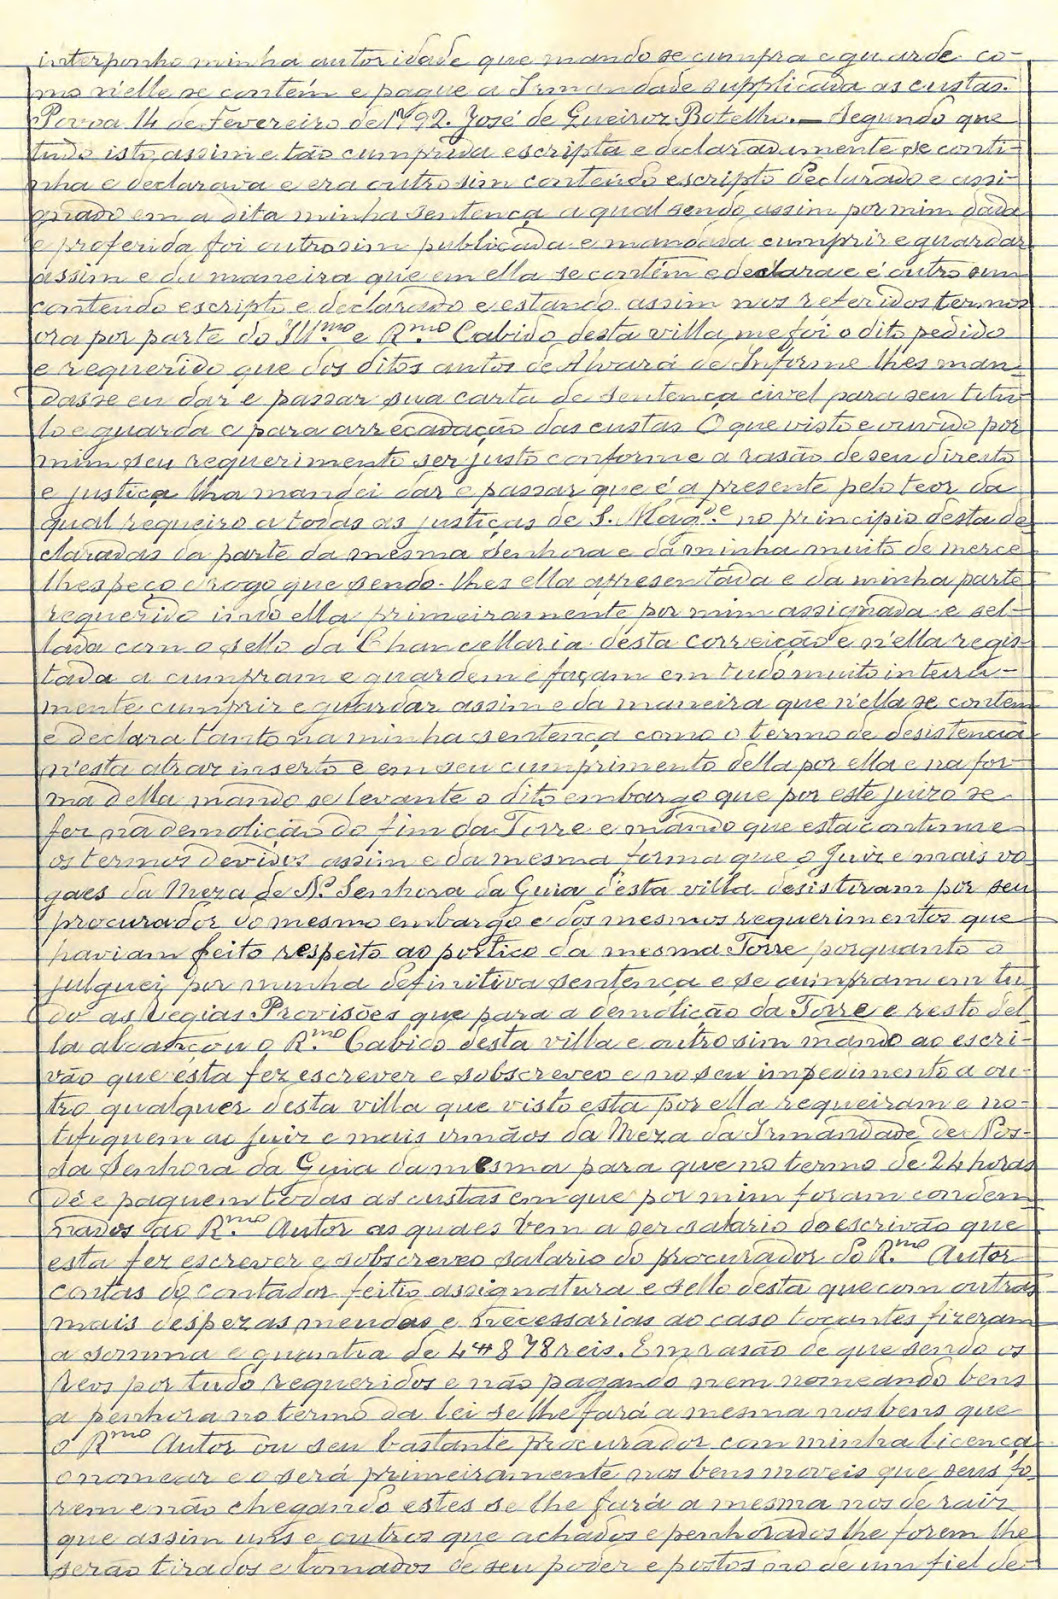 interponho minha autoridade que mando se cumpra e guarde co-
mo n'elle se contém e pague a Irmandade supplicada as custas.
Povoa 14 de Fevereiro de 1792. José de Queiroz Botelho. — Segundo que
tudo isto, assim e tão cumprida escripta e declaradamente se conti-
nha e declarava e era outro sim contendo escripto declarado e assi-
gnado em a dita minha sentença a qual sendo assim por mim dada
e proferida foi outrosim publicada e mandada cumprir e guardar
assim e da maneira que em ella se contém e declara e é outro sim
contendo escripto e declarado e estando assim nos referidos termos
ora por parte do Ill.mo e R.mo Cabido desta villa, me foi o dito pedido
e requerido que dos ditos autos de Alvará de Informe lhes man-
dasse eu dar e passar sua carta de sentença civel para seu titu-
lo e guarda e para arrecadação das custas O que visto e ouvido por
mim seu requerimento ser justo conforme a rasão de seu direito
e justiça lha mandei dar e passar que é a presente pelo teor da
qual requeiro a todas as justiças de S. Mag.de no principio desta de
claradas da parte da mesma Senhora e da minha muito de merce
lhes peço e rogo que sendo-lhes ella apresentada e da minha parte
requerido indo ella primeiramente por mim assignada e sel-
lada com o sello da Chancellaria desta correição e n'ella regis-
tada a cumpram e guardem e façam em tudo muito inteira-
mente cumprir e guardar assim e da maneira que n'ella se contem
e declara tanto na minha sentença como o termo de desistencia
n'esta atraz inserto e em seu cumprimento della por ella e na for-
ma della mando se levante o dito embargo que por este juizo se
fez na demolição do fim da Torre e mando que esta continue
os termos devidos assim e da mesma forma que o Juiz e mais vo-
gaes da Meza de N.ª Senhora da Guia d'esta villa desistiram por seu
procurador do mesmo embargo e dos mesmos requerimentos que
haviam feito respeito ao portico da mesma Torre porquanto o
julguei por minha definitiva sentença e se cumpram em tu-
do as Regias Provisões que para a demolição da Torre e resto del-
la alcançou o R.mo Cabido desta villa e outro sim mando ao escri-
vão que esta fez escrever e subscreveo e no seu impedimento a ou-
tro qualquer desta villa que visto esta por ella requeiram e no-
tifiquem ao Juiz e mais irmãos da Meza da Irmandade de Nos-
sa Senhora da Guia da mesma para que no termo de 24 horas
dê e paguem todas as custas em que por mim foram condem
nados ao R.mo Autor as quaes vem a ser salario do escrivão que
esta fez escrever e subscreveo salario do procurador do R.mo Autor
contas do contador feitio assignatura e sello desta que com outras
mais despezas mendas e necessarias ao caso tocantes fizeram
a somma e quantia de 4#878 reis. Em rasão de que sendo os
Reos por tudo requeridos e não pagando nem nomeando bens
a penhora no termo da lei se lhe fará a mesma nos bens que
o R.mo Autor ou seu bastante procurador com minha licença
o nomear e o será primeiramente nos bens moveis que seus fo-
rem e não chegando estes se lhe fará a mesma nos de raiz
que assim uns e outros que achados e penhorados lhe forem lhe
serão tirados e tomados de seu poder e postos no de um fiel de-